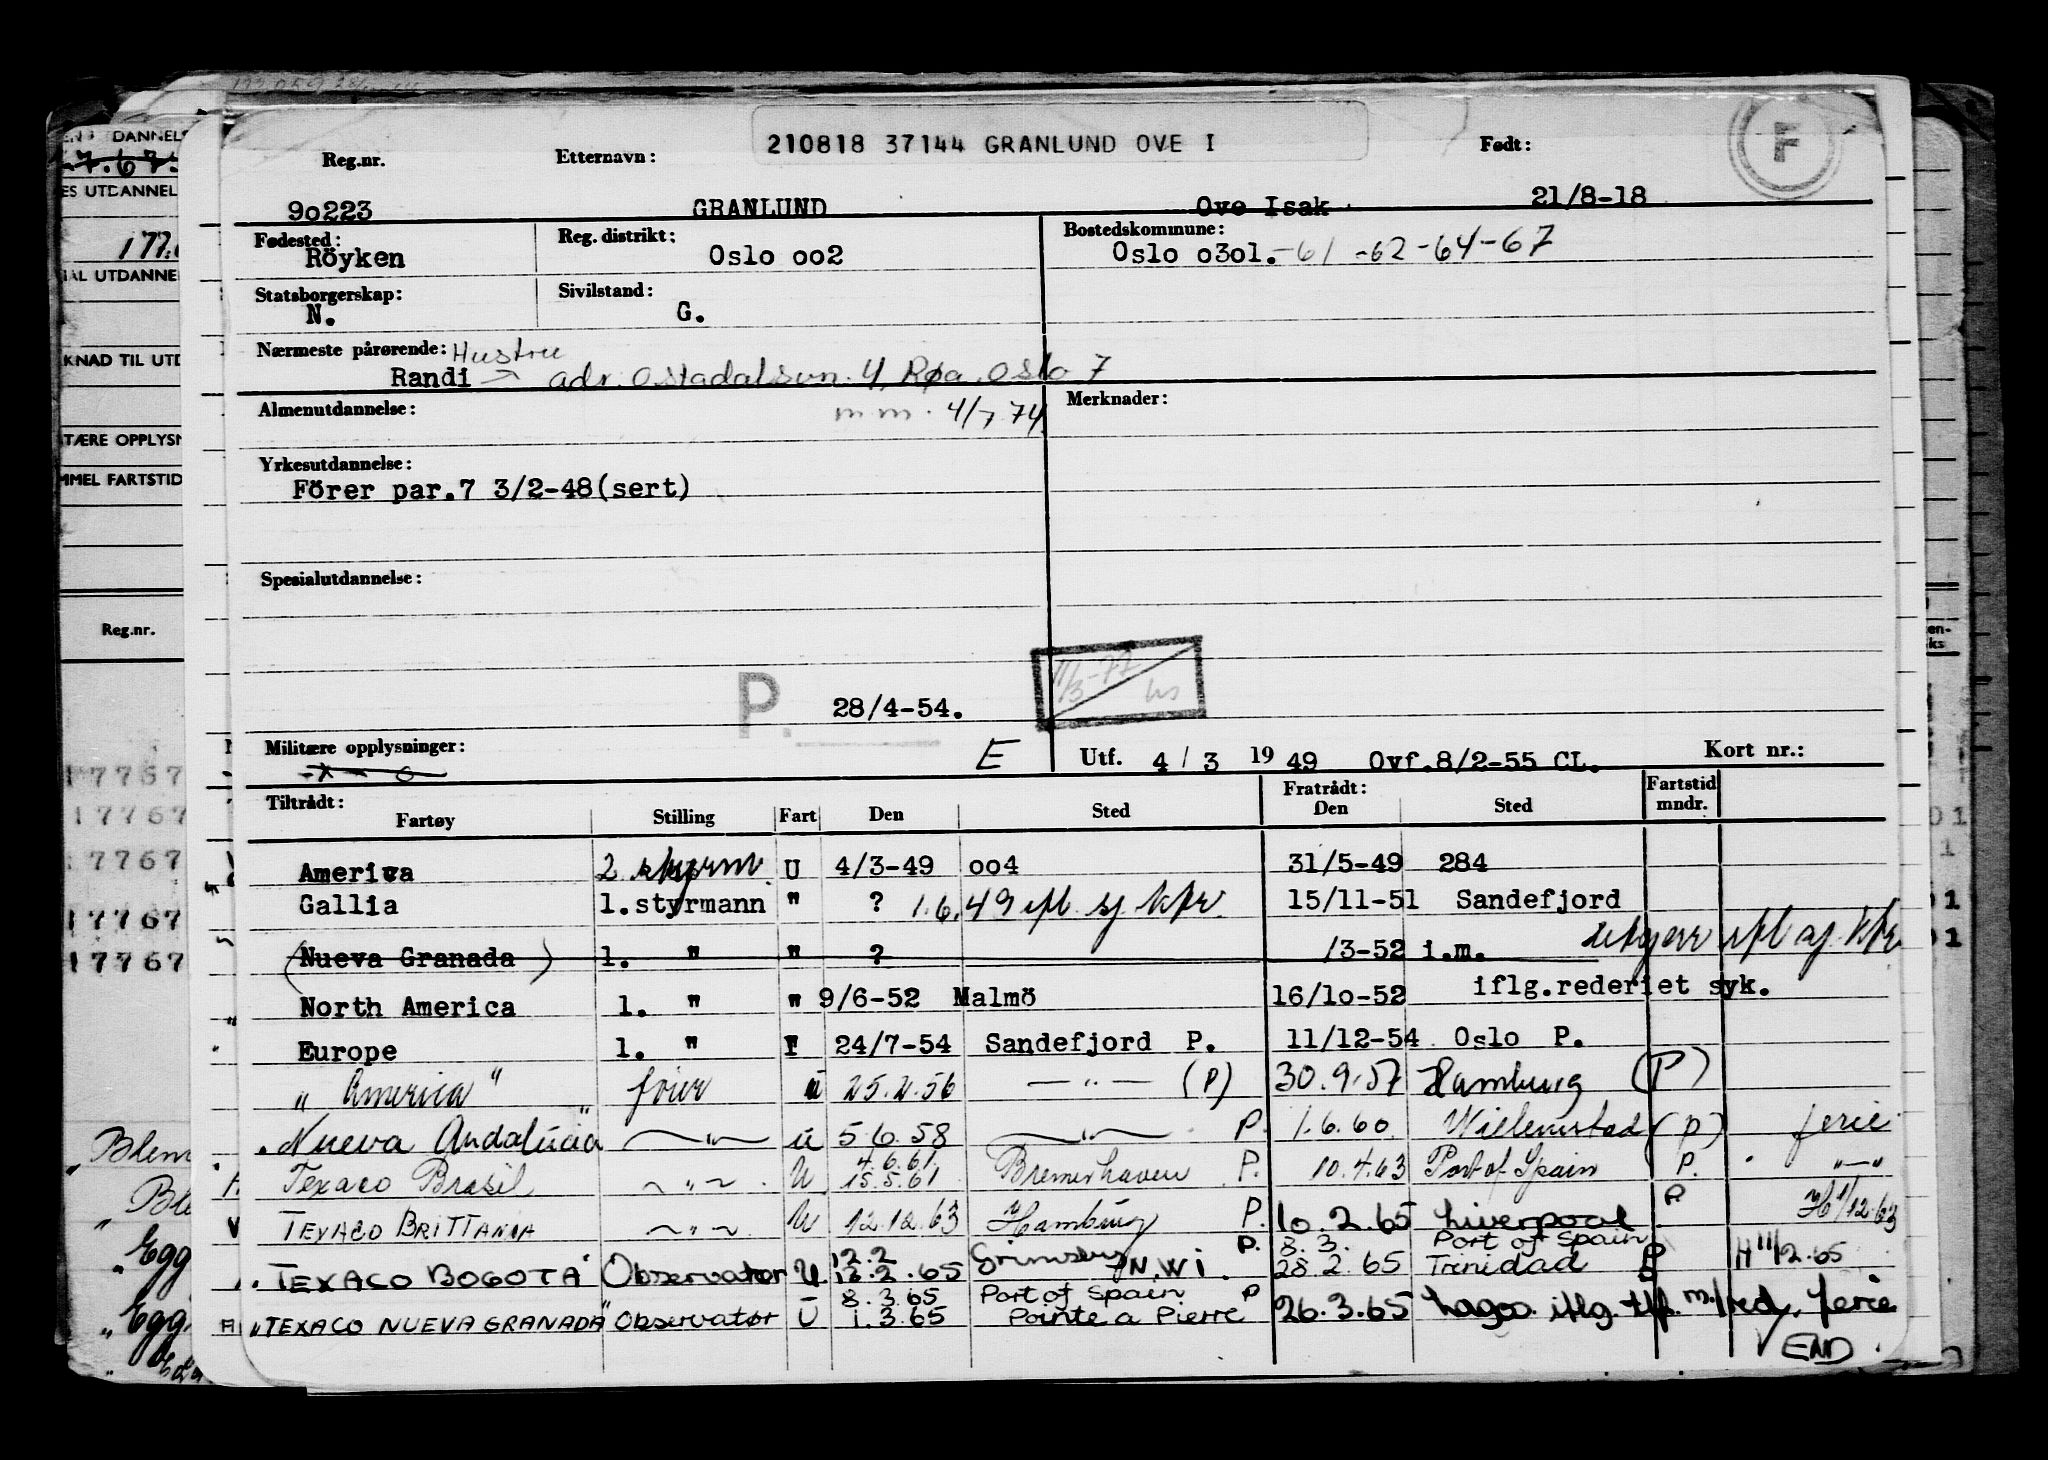 210818 37144 GRANLUND OVE I
Reg.nr. Etternavn: Født: F
90223 GRANLUND Ove Isak 21/8-18
Fødested: Reg. distrikt: Bostedskommune:
Röyken Oslo oo2 Oslo o3ol. -61 -62 -64 -67
Statsborgerskap: Sivilstand:
N. G.
Nærmeste pårørende: Hustru
Randi adr. Ostadalsvn. 4, Røa Oslo 7
Almenutdannelse: m m. 4/7 74. Merknader:
Yrkesutdannelse:
Förer par.7 3/2-48(sert)
Spesialutdannelse:
11/3-77
P. 28/4-54.
Militære opplysninger: E Utf. 4/3 1949 Ovf.8/2-55 CL. Kort nr.:
Tiltrådt: Fratrådt: Fartstid
Fartøy Stilling Fart Den Sted Den Sted mndr.
America 2 styrm. U 4/3-49 oo4 31/5-49 284
Gallia 1.styrmann " ? 1.6.49 ifl. sj. kfr. 15/11-51 Sandefjord
(Nueva Granada) 1. " " ? /3-52 i.m. utgerr ifl aj. kfr
North America 1. " " 9/6-52 Malmö 16/1o-52 iflg.rederiet syk.
Europe 1. " 24/7-54 Sandefjord P. 11/12-54 Oslo P.
"America" fører u 25.2.56 — " — (P) 30.9.57 Hamburg (P)
"Nueva Andalucia" — " — u 5.6.58 — " — P. 1.6.60 Willemstad (P) ferie
4.6.61.
Texaco Brasil — " — U 15.5.61 Bremerhaven P. 10.4.63 Port of Spain P. — " —
TEXACO BRITTANIA — " — U 12.12.63 Hamburg P. 10.2.65 Liverpool P H 1/12.63
12.2 Grimsby P. 8.3. Port of Spain
"TEXACO BOGOTA" Observatør U 13.2.65 N.W i. 28.2.65 Trinidad P H 11/2.65
8.3.65 Port of Spain P
"TEXACO NUEVA GRANADA" Observatør U 1.3.65 Pointe a Pierre 26.3.65 Lagos iflg. tlf. m/red, ferie
END
DANNELS
ES UTDANNEL
177.
IAL UTDANNE
KNAD TIL UTD
TÆRE OPPLYSN
MMEL FARTSTID
Reg.nr.
17767
17767
17767
17767
17767